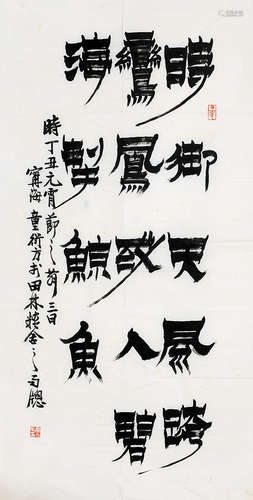 時御天風跨
鸞鳳或入碧
海掣鯨魚
時丁丑元宵節之前三日
寧海童衍方於田林舍之牎